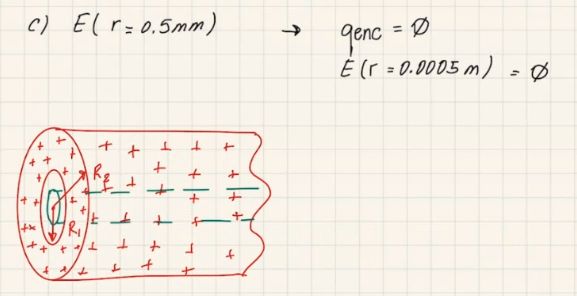 c) E( r = 0.5mm) → qenc = Ø
E (r = 0.0005 m) = Ø
R2
R1